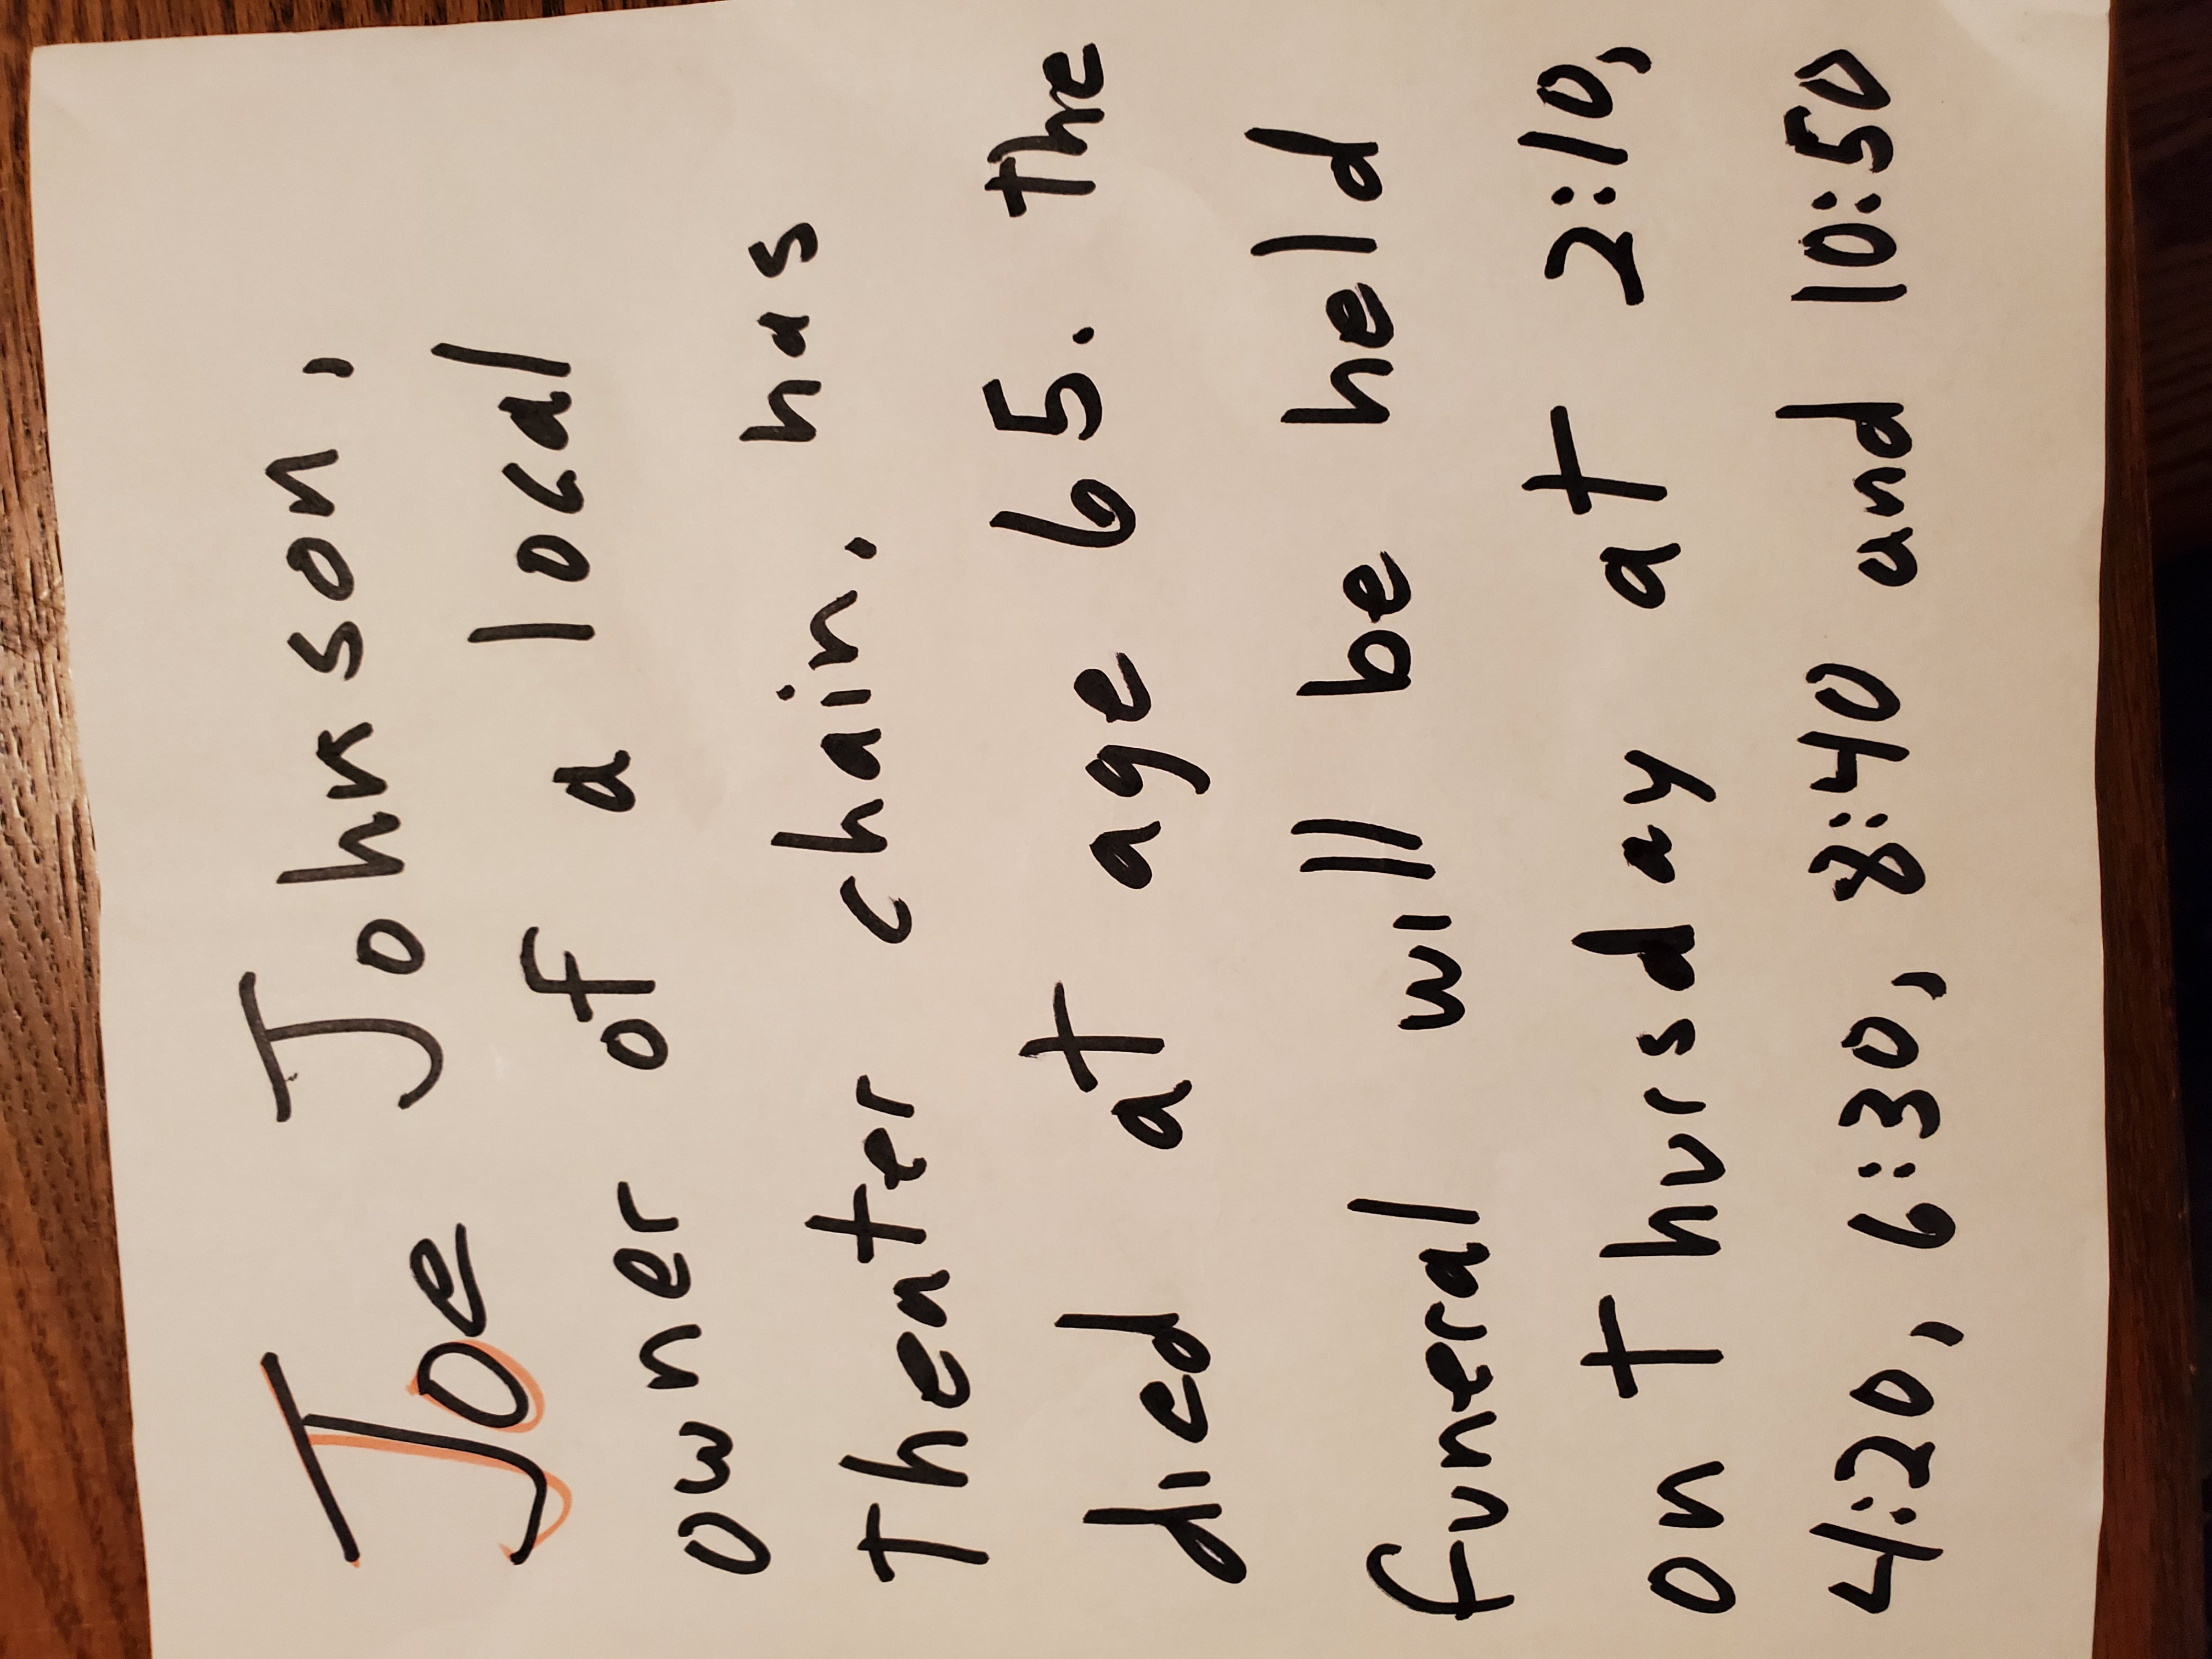 Joe Johnson,
owner of a local
theater chain, has
died at age 65. the
funeral will be held
on thursday at 2:10,
4:20, 6:30, 8:40 and 10:50